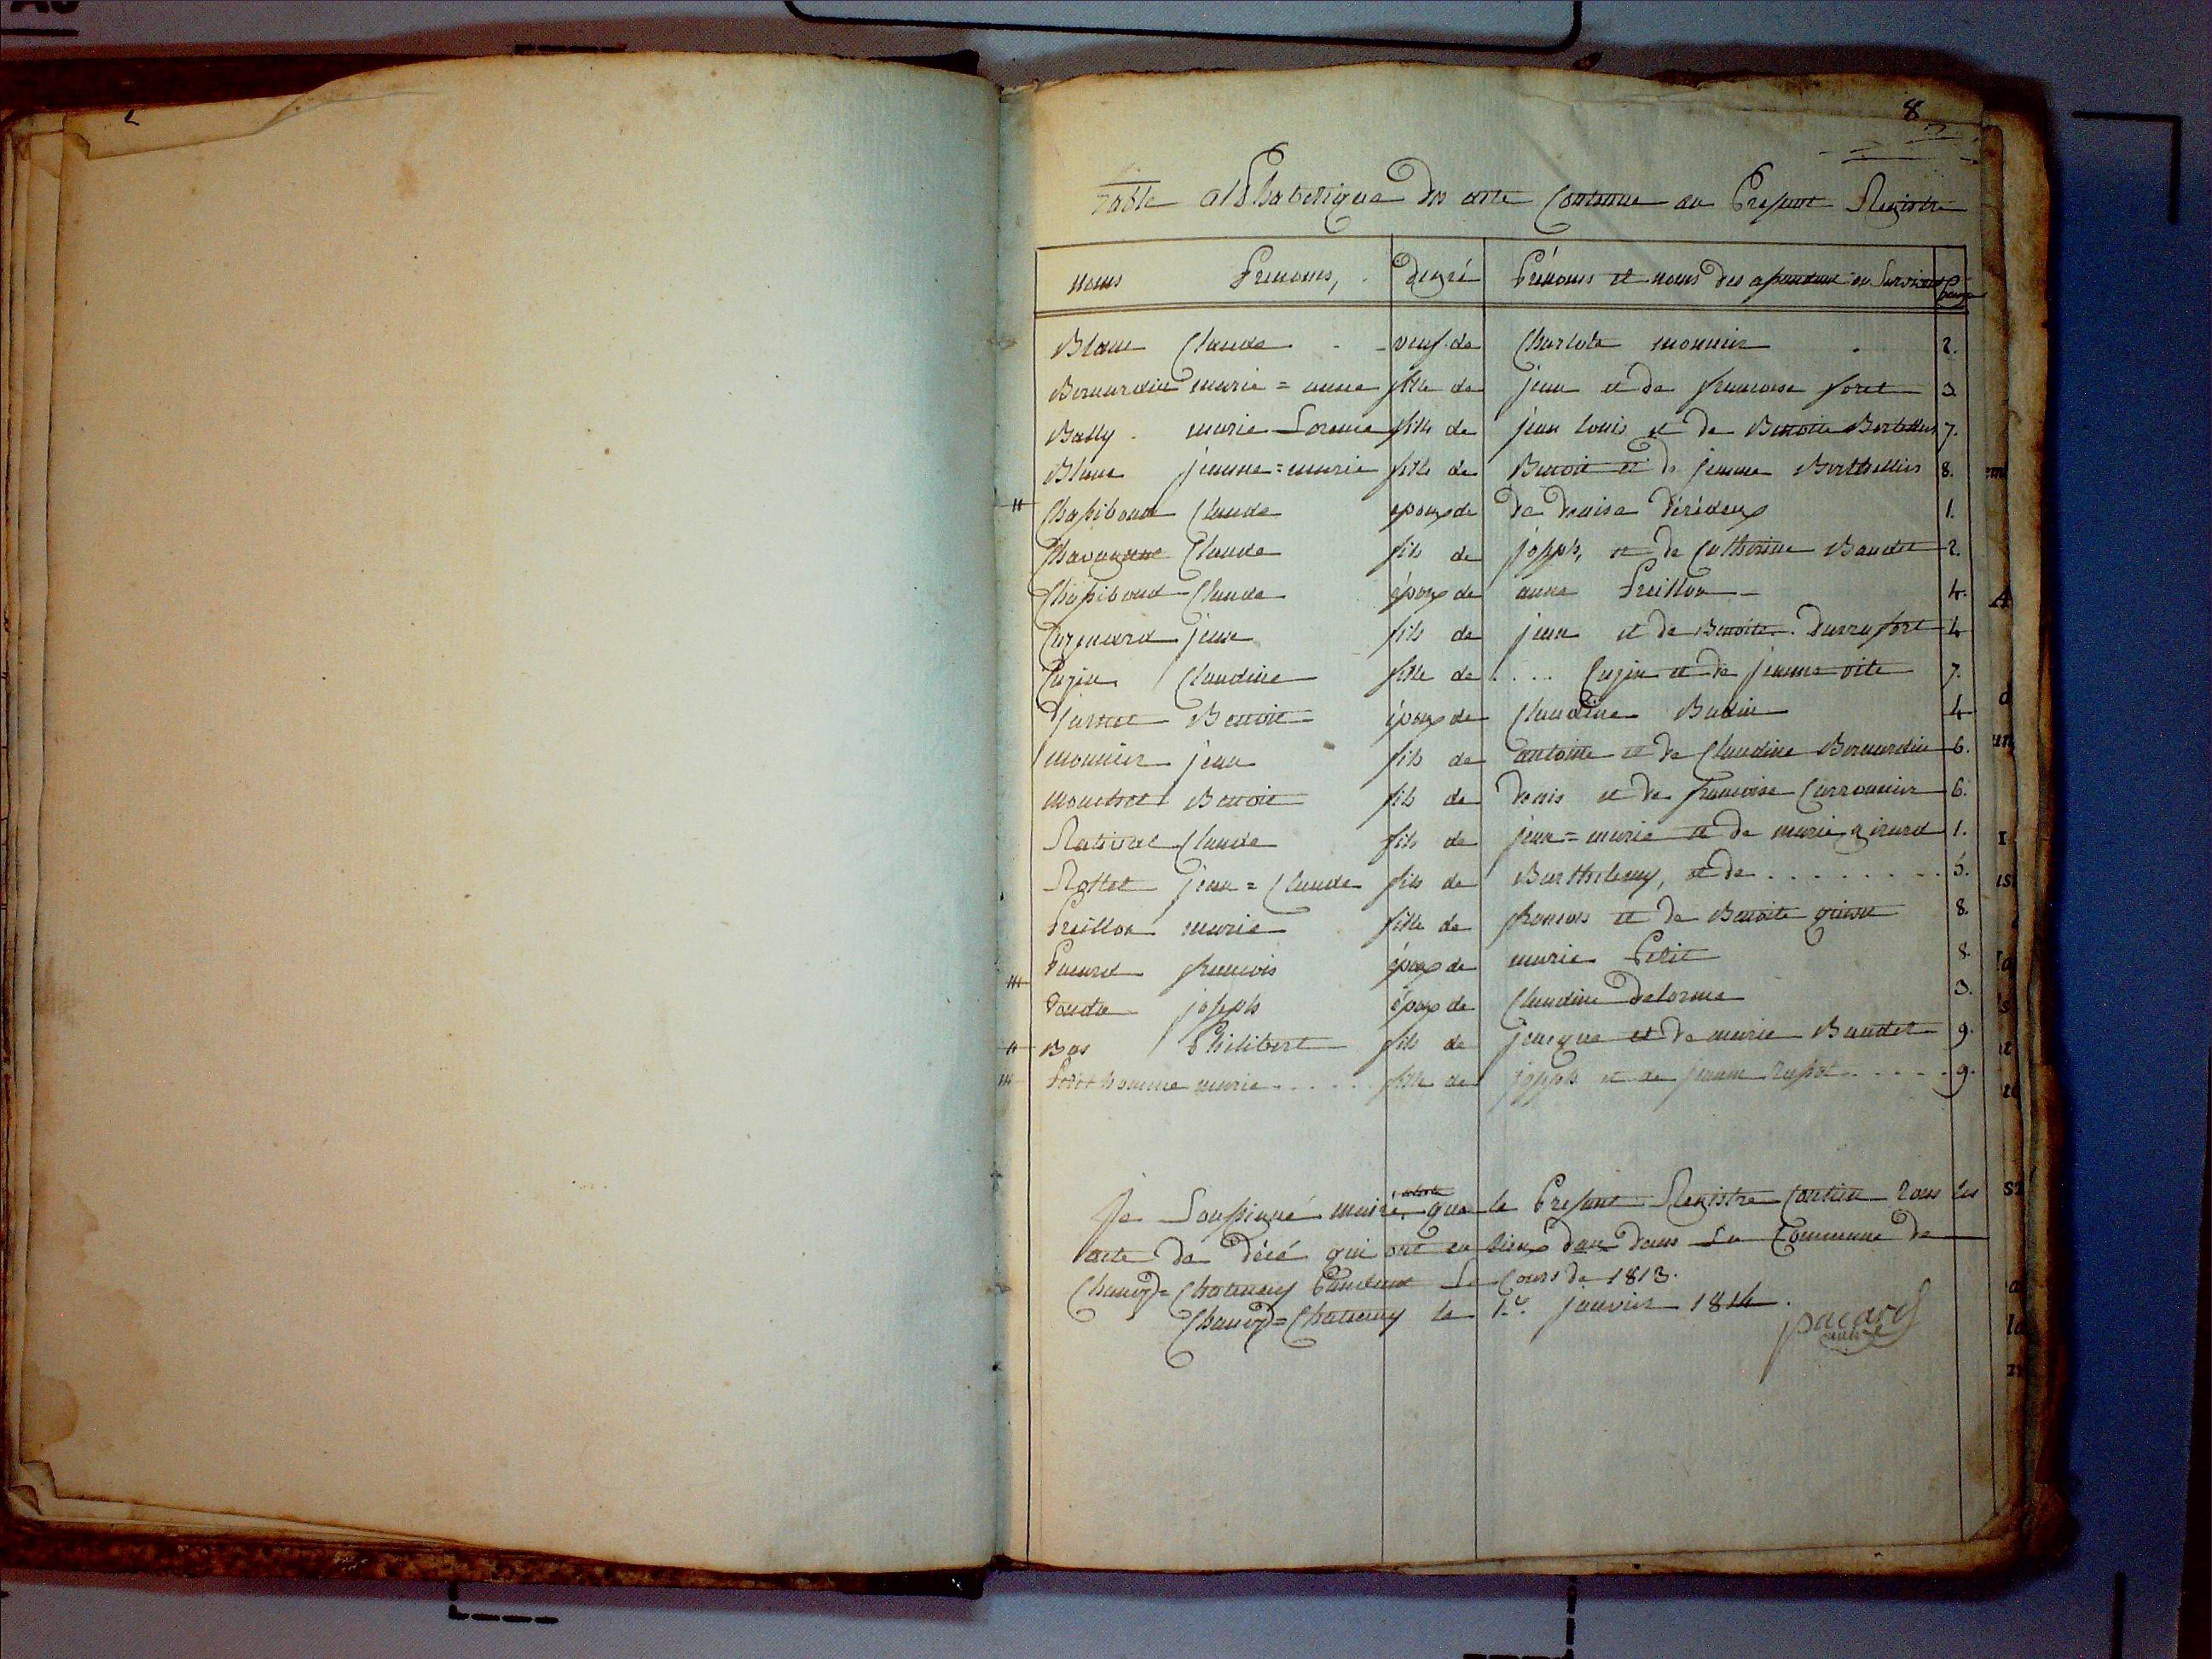 8
Table alphabetique des acte Contenue au Present Registre
noms Prenoms, degré Prénoms et noms des ou Survivant page
Blanc Claude veuf de Charlote monnier 2.
Bernardin marie = anne fille de jean et de francoise foret 3
Bally marie Lorence fille de jean louis et de Benoite 7.
Blanc jeanne = marie fille de Benoit et de jeanne Berthellier 8.
Chapiboud Claude epoux de de denise 1.
Claude fils de joseph, et de Catherine Baudet 2.
Chapiboud Claude époux de anne Freillon 4.
jean fils de jean et de Benoite Durrafort 4
Cugin Claudine fille de ... Cugin et de jeanne vite 7.
Benoit époux de Claudine Badin 4
monnier jean fils de antoine et de Claudine Bernardin 6.
Monchet Benoit fils de denis et de francoise Carronnier 6.
Claude fils de jean = marie et de marie girard 1.
jean = Claude fils de Barthelemy, et de ........ 5.
Freillon marie fille de francois et de Benoite 8.
Pacard francois époux de marie Petit 8
joseph époux de Claudine Delorme 3.
Bas Philibert fils de jacque et de marie Baudet 9.
marie ...... fille de joseph et de jeanne ..... 9.
Je Soussigné maire, atteste que le Present Registre Contien tous les
acte de décé qui ont eu lieux dan dans La Commune de
Chanoz = Chatenay Pendant Le Cours de 1813.
Chanoz = Chatenay le 1er janvier 1814.
pacard
maire